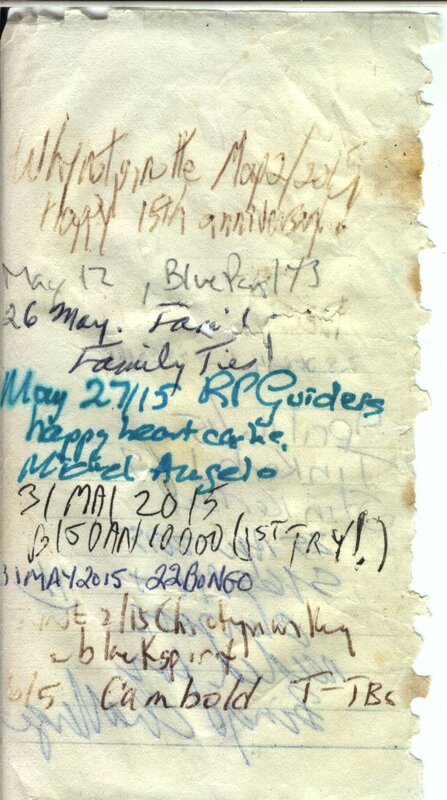 Why not join the May 2/2015
Happy 15th anniversary!
May 12, BluePearl73
26 May. Family
Family Ties!
May 27/15 RPGuiders
happy heart cache.
Michel Angelo
31 MAI 2015
BISOAN10000 (1ST TRY!)
31MAY2015 22BONGO
2/15
blackspirit
6/5 Cambold T-TBs